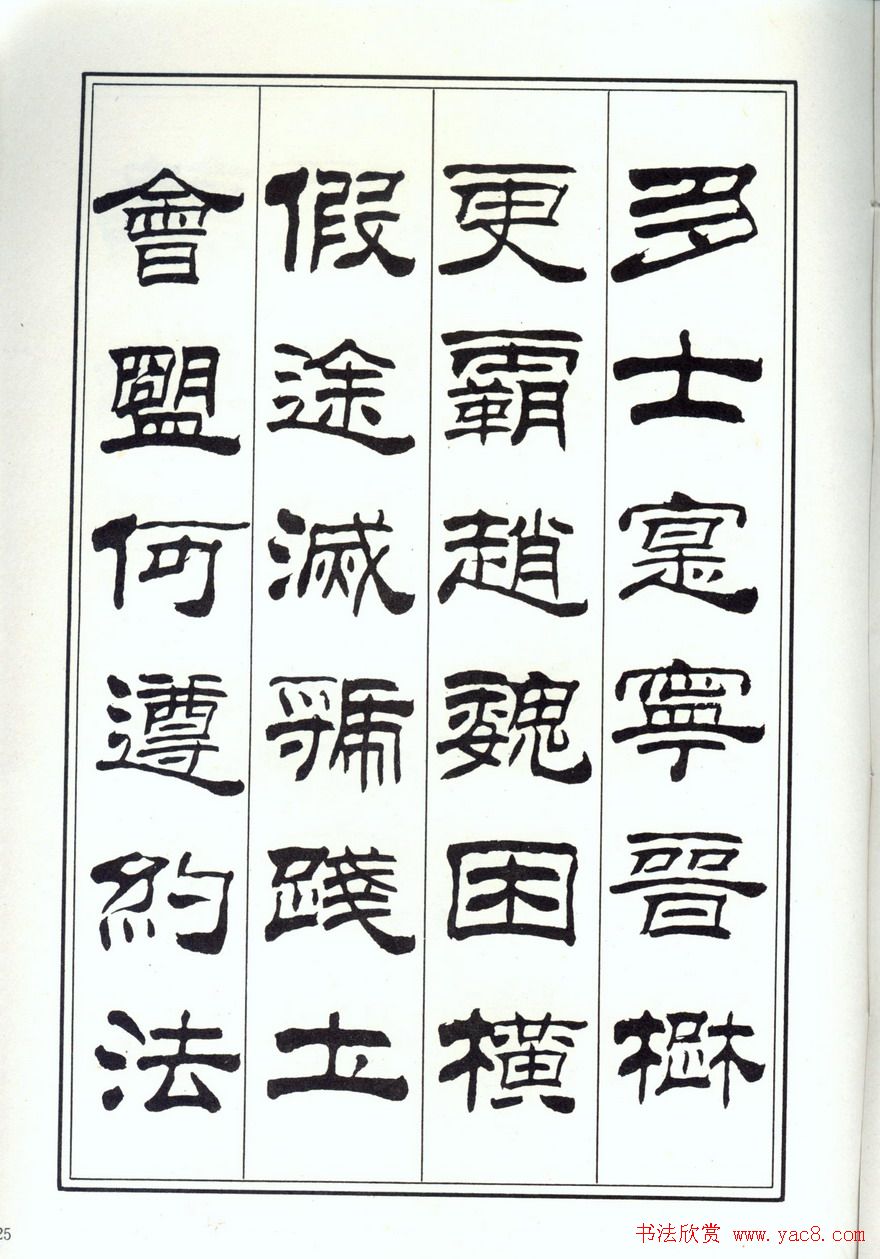 多士寔寧晉楚
更霸趙魏困橫
假途滅虢踐土
會盟何遵約法
25
书法欣赏 www.yac8.com